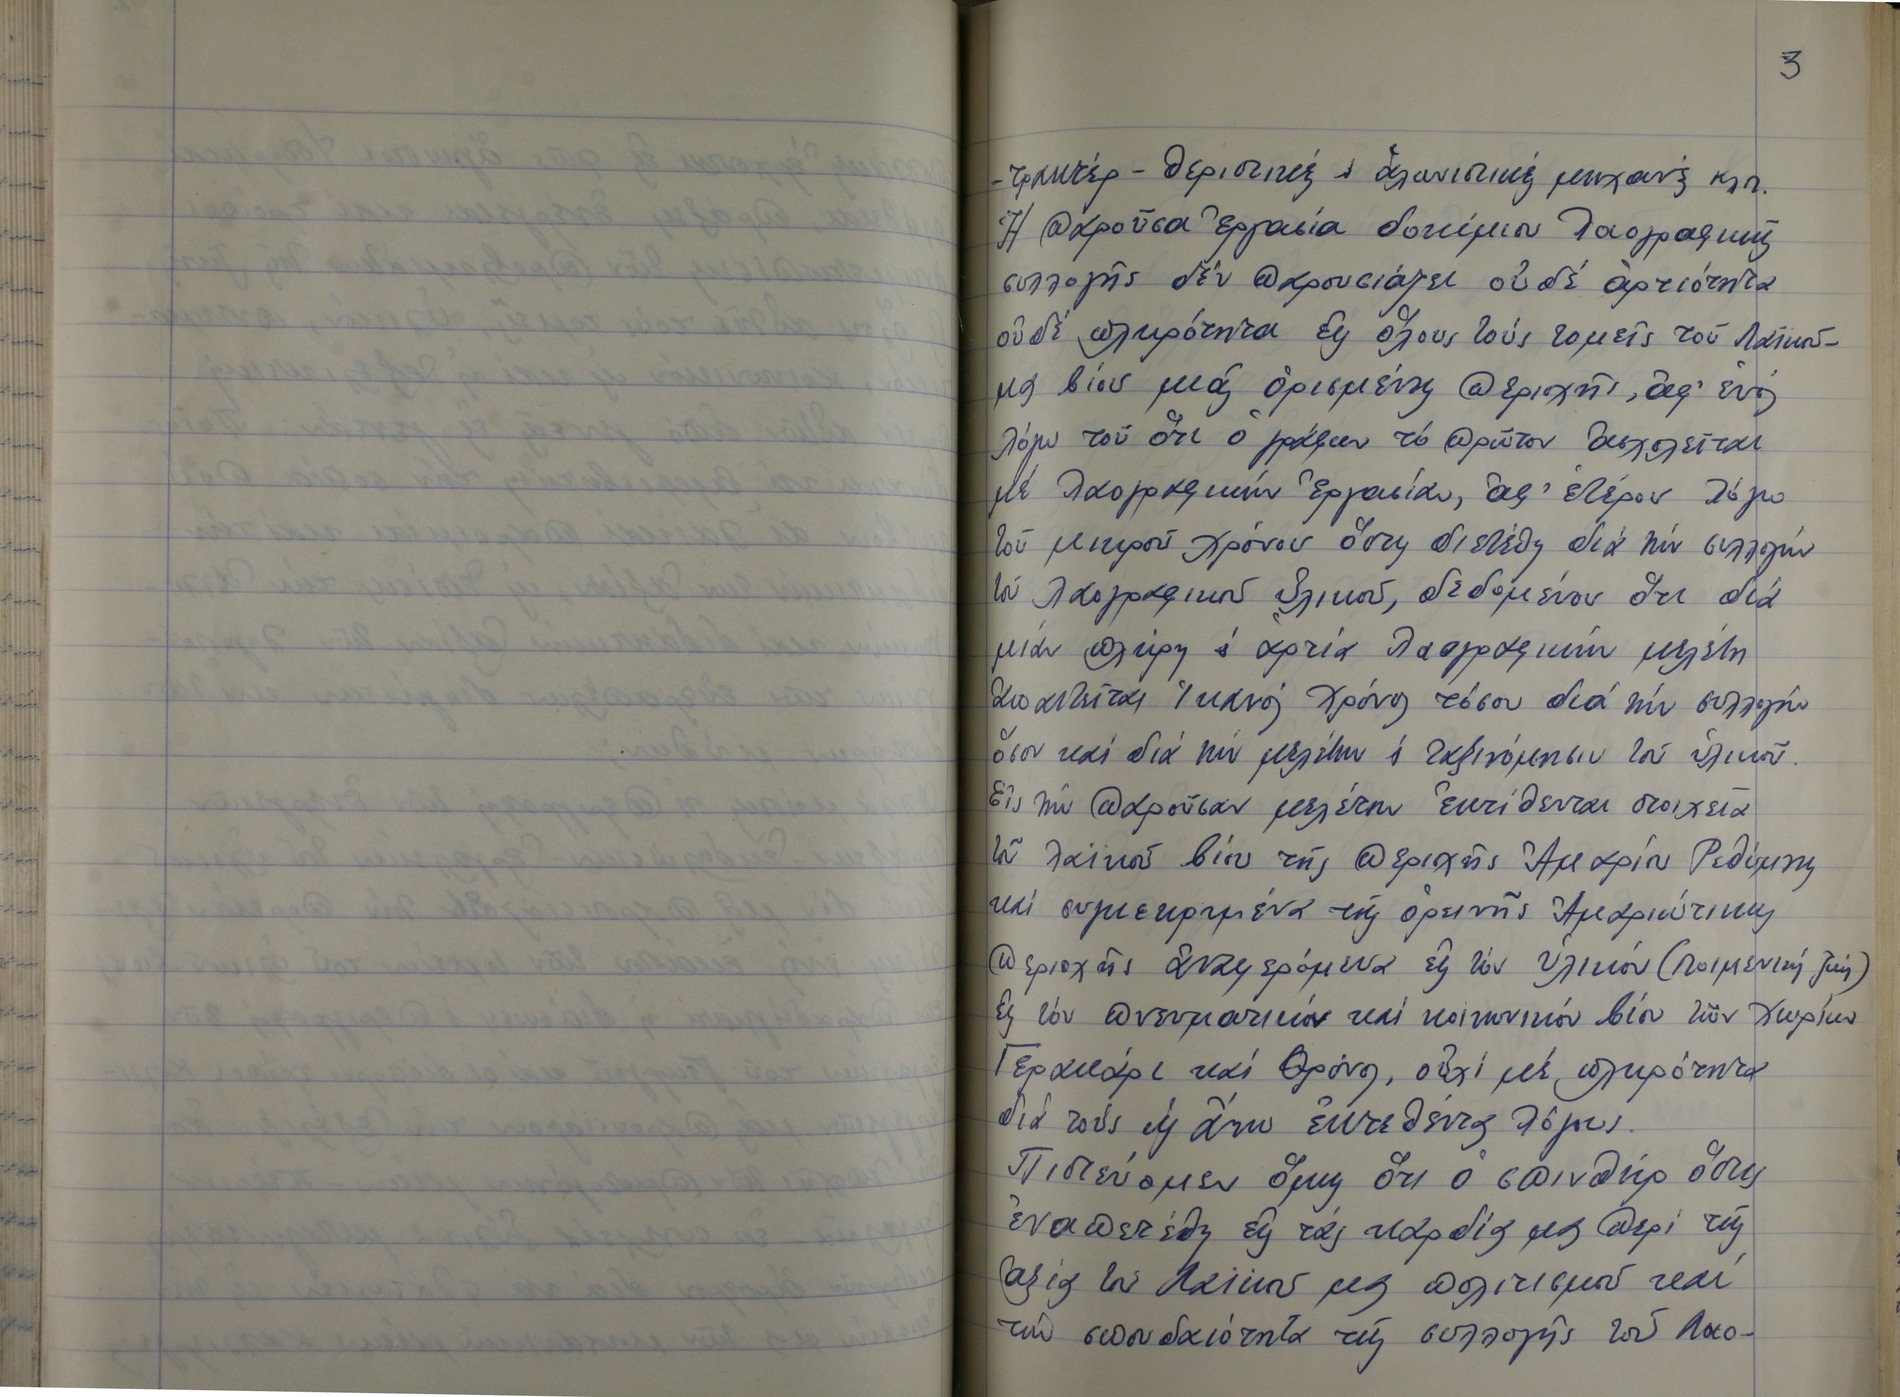 3
-τρακτέρ - θεριστικές & ἁλωνιστικές μηχανές κλπ.
Ἡ παροῦσα ἐργασία δοκίμιον λαογραφικῆς
συλλογῆς δέν παρουσιάζει οὐδέ ἀρτιότητα
οὐδέ πληρότητα εἰς ὅλους τούς τομεῖς τοῦ λαϊκοῦ-
μας βίου μιᾶς ὁρισμένης περιοχῆς, ἀφ' ἑνός
λόγω τοῦ ὅτι ὁ γράφων τό πρῶτον ἀσχολεῖται
μέ λαογραφικήν ἐργασίαν, ἀφ' ἑτέρου λόγω
τοῦ μικροῦ χρόνου ὅστις διετέθη διά τήν συλλογήν
τοῦ λαογραφικοῦ ὑλικοῦ, δεδομένου ὅτι διά
μίαν πλήρη & ἀρτία λαογραφικήν μελέτη
ἀπαιτεῖται ἱκανός χρόνος τόσον διά τήν συλλογήν
ὅσον καί διά τήν μελέτην & ταξινόμησιν τοῦ ὑλικοῦ.
Εἰς τήν παροῦσαν μελέτην ἐκτίθενται στοιχεῖα
τοῦ λαϊκοῦ βίου τῆς περιοχῆς Ἀμαρίου Ρεθύμνης
καί συγκεκριμένα τῆς ὀρεινῆς Ἀμαριώτικης
περιοχῆς ἀναφερόμενα εἰς τόν ὑλικόν (ποιμενική ζωή)
εἰς τόν πνευματικόν καί κοινωνικόν βίον τῶν χωρίων
Γερακάρι καί Θρόνος, οὐχί μέ πληρότητα
διά τούς ὡς ἄνω ἐκτεθέντας λόγους.
Πιστεύομεν ὅμως ὅτι ὁ σπινθήρ ὅστις
ἐναπετέθη εἰς τάς καρδίας μας περί τῆς
ἀξίας τοῦ λαϊκοῦ μας πολιτισμοῦ καί
τήν σπουδαιότητα τῆς συλλογῆς τοῦ λαο-